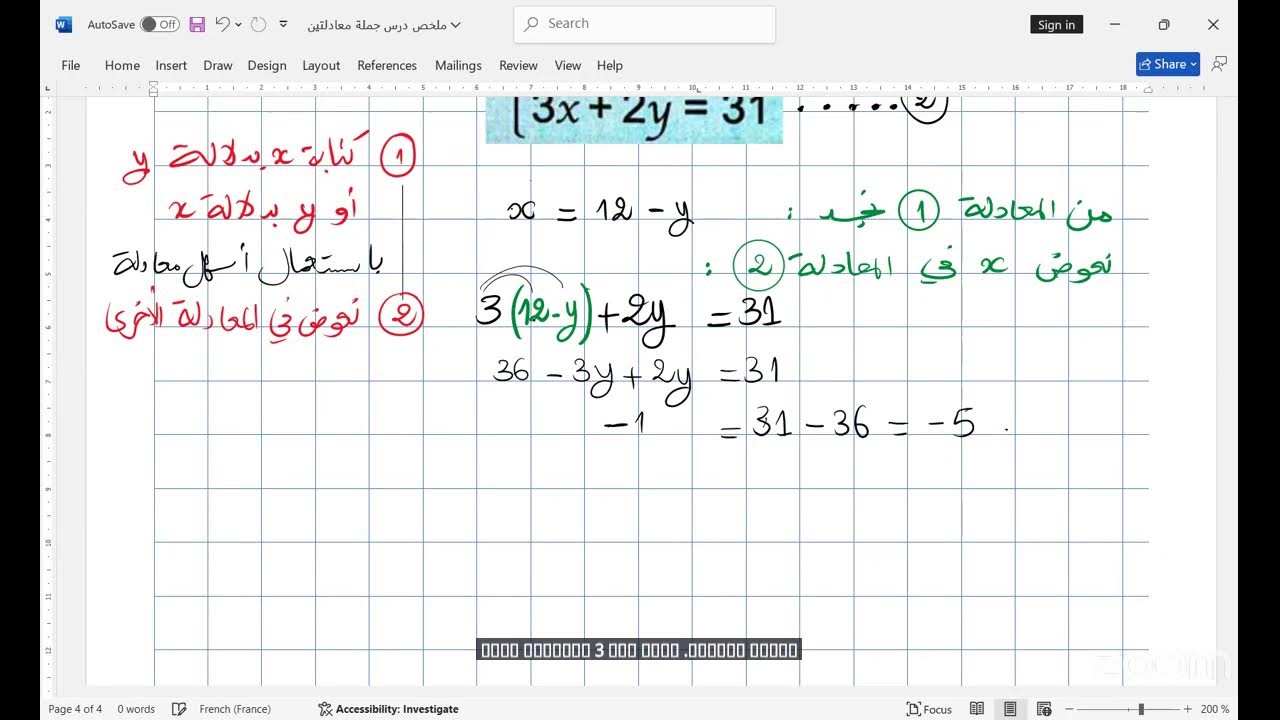 AutoSave Off ملخص درس جملة معادلتين Search Sign in
File Home Insert Draw Design Layout References Mailings Review View Help Share
3x + 2y = 31 ..... 2
1 كتابة x بدلالة y
أو y بدلالة x
باستعمال أسهل معادلة
2 نعوض في المعادلة الأخرى
من المعادلة 1 نجد :
x = 12 - y
نعوض x في المعادلة 2 :
3(12-y)+2y = 31
36 - 3y + 2y = 31
-1 = 31 - 36 = -5
zoom
Page 4 of 4 0 words French (France) Accessibility: Investigate Focus 200 %